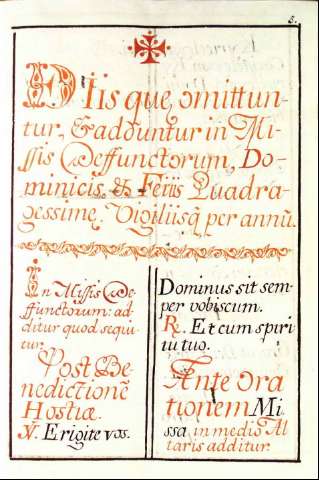 8.
DIis que omittun-
tur, & adduntur in Mi-
ssis Deffunctorum, Do-
minicis, & Feriis Quadra-
gessime, Vigiliisq̃ per annũ.
In Missis De-
ffunctorum: ad-
ditur quod sequi-
tur.
Post Be-
nedictionẽ
Hostiæ.
℣. Erigite vos.
Dominus sit sem-
per vobiscum.
℟. Et cum spiri
tu tuo.
Ante Ora
tionem Mi-
ssa in medio Al
taris additur.